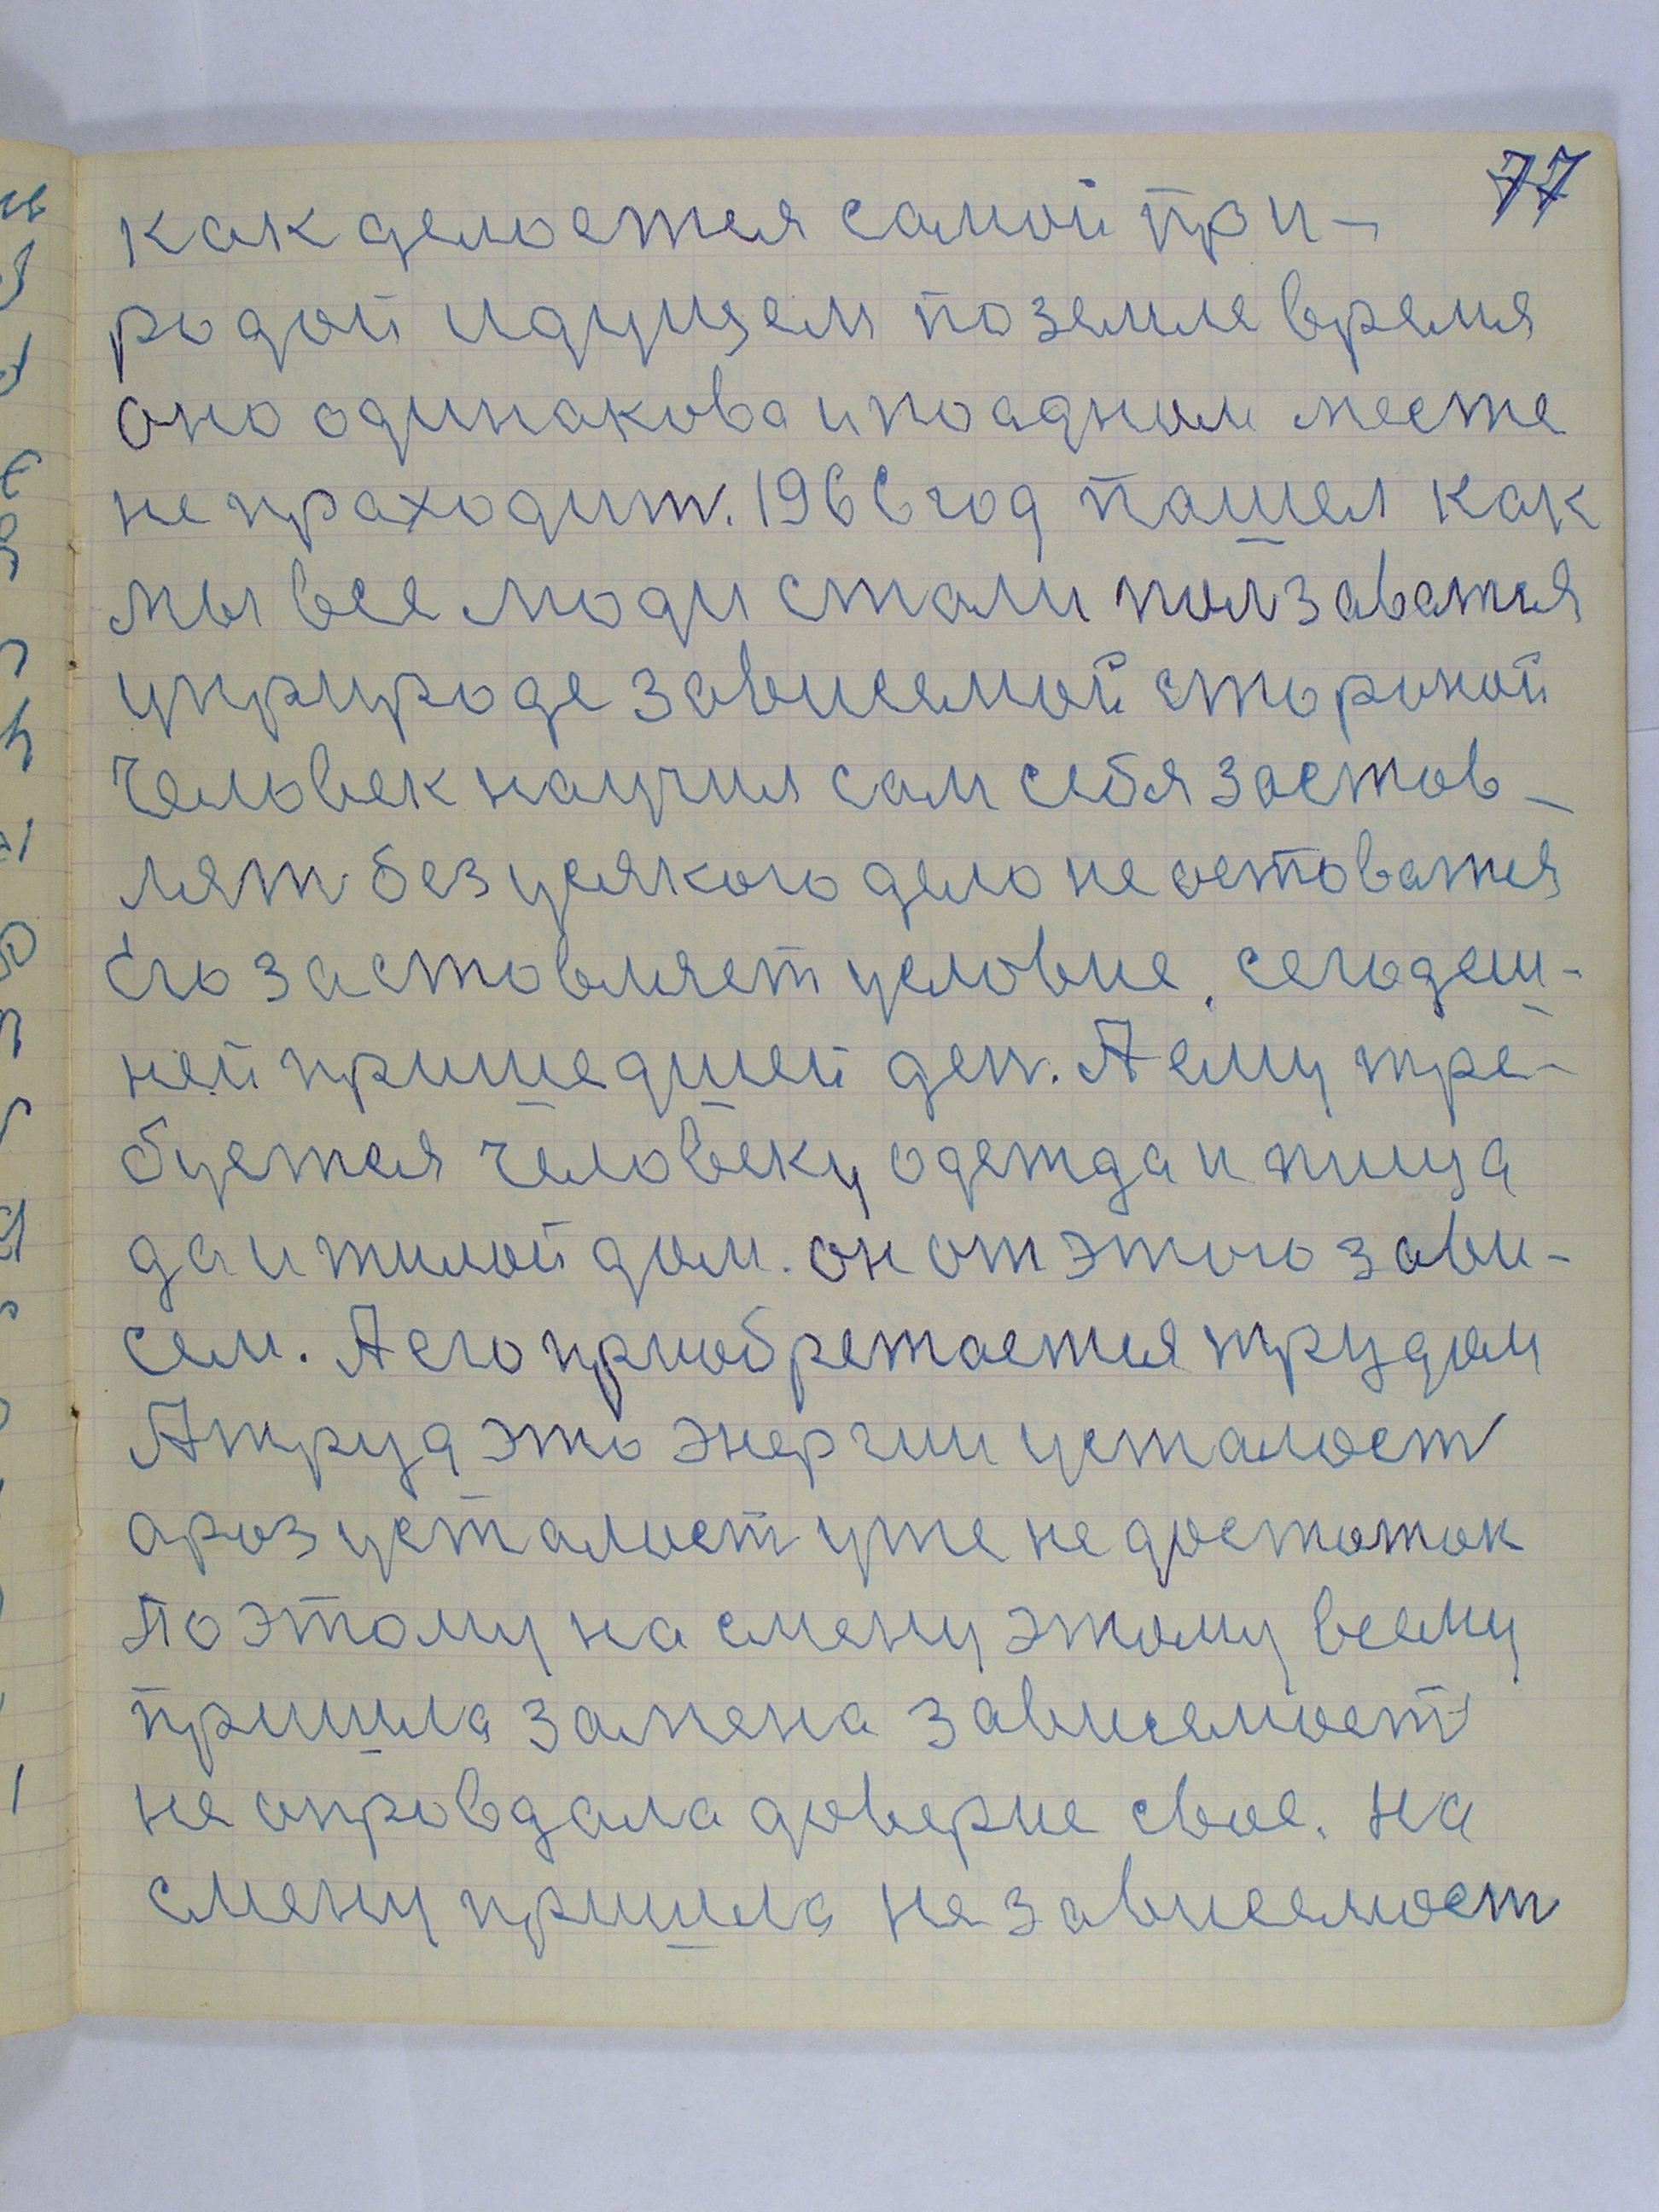 77
как делоется самой при-
родой идущем по земле время
оно одинакова и по адном месте
не праходит. 1966 год пашел как
мы все люди стали ползаватся
у природе зависемой стороной
Человек научил сам себя застов-
лят без усякого дело не остоватся
Его застовляет условие. сегодеш-
ней пришедшей ден. А ему тре-
буется человеку одежда и пища
да и жилой дом. он от этого зави-
сем. А его приобретается трудом
А труд это энергии усталост
а роз усталост уже не достоток
Поэтому на смену этому всему
пришла замена зависемост
не опровдала доверие свое. На
смену пришла независемост